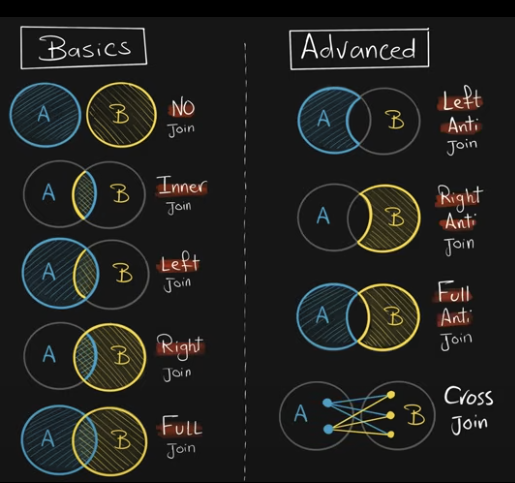 Basics
A B NO
Join
A B Inner
Join
A B Left
Join
A B Right
Join
A B Full
Join
Advanced
A B Left
Anti
Join
A B Right
Anti
Join
A B Full
Anti
Join
A B Cross
Join